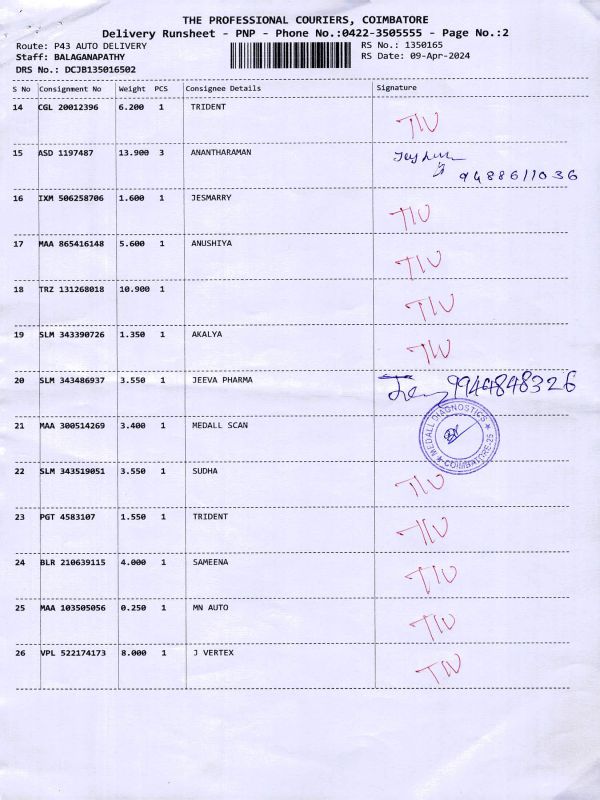 THE PROFESSIONAL COURIERS, COIMBATORE
Delivery Runsheet - PNP - Phone No.:0422-3505555 - Page No.:2
Route: P43 AUTO DELIVERY RS No.: 1350165
Staff: BALAGANAPATHY RS Date: 09-Apr-2024
DRS No.: DCJB135016502
S No Consignment No Weight PCS Consignee Details Signature
14 CGL 20012396 6.200 1 TRIDENT TIU
15 ASD 1197487 13.900 3 ANANTHARAMAN
9488611036
16 IXM 506258706 1.600 1 JESMARRY TIU
17 MAA 865416148 5.600 1 ANUSHIYA TIU
18 TRZ 131268018 10.900 1 TIU
19 SLM 343390726 1.350 1 AKALYA TIU
20 SLM 343486937 3.550 1 JEEVA PHARMA 9944848326
21 MAA 300514269 3.400 1 MEDALL SCAN MEDALL DIAGNOSTICS COIMBATORE-25
22 SLM 343519051 3.550 1 SUDHA TIU
23 PGT 4583107 1.550 1 TRIDENT TIU
24 BLR 210639115 4.000 1 SAMEENA TIU
25 MAA 103505056 0.250 1 MN AUTO TIU
26 VPL 522174173 8.000 1 J VERTEX TIU